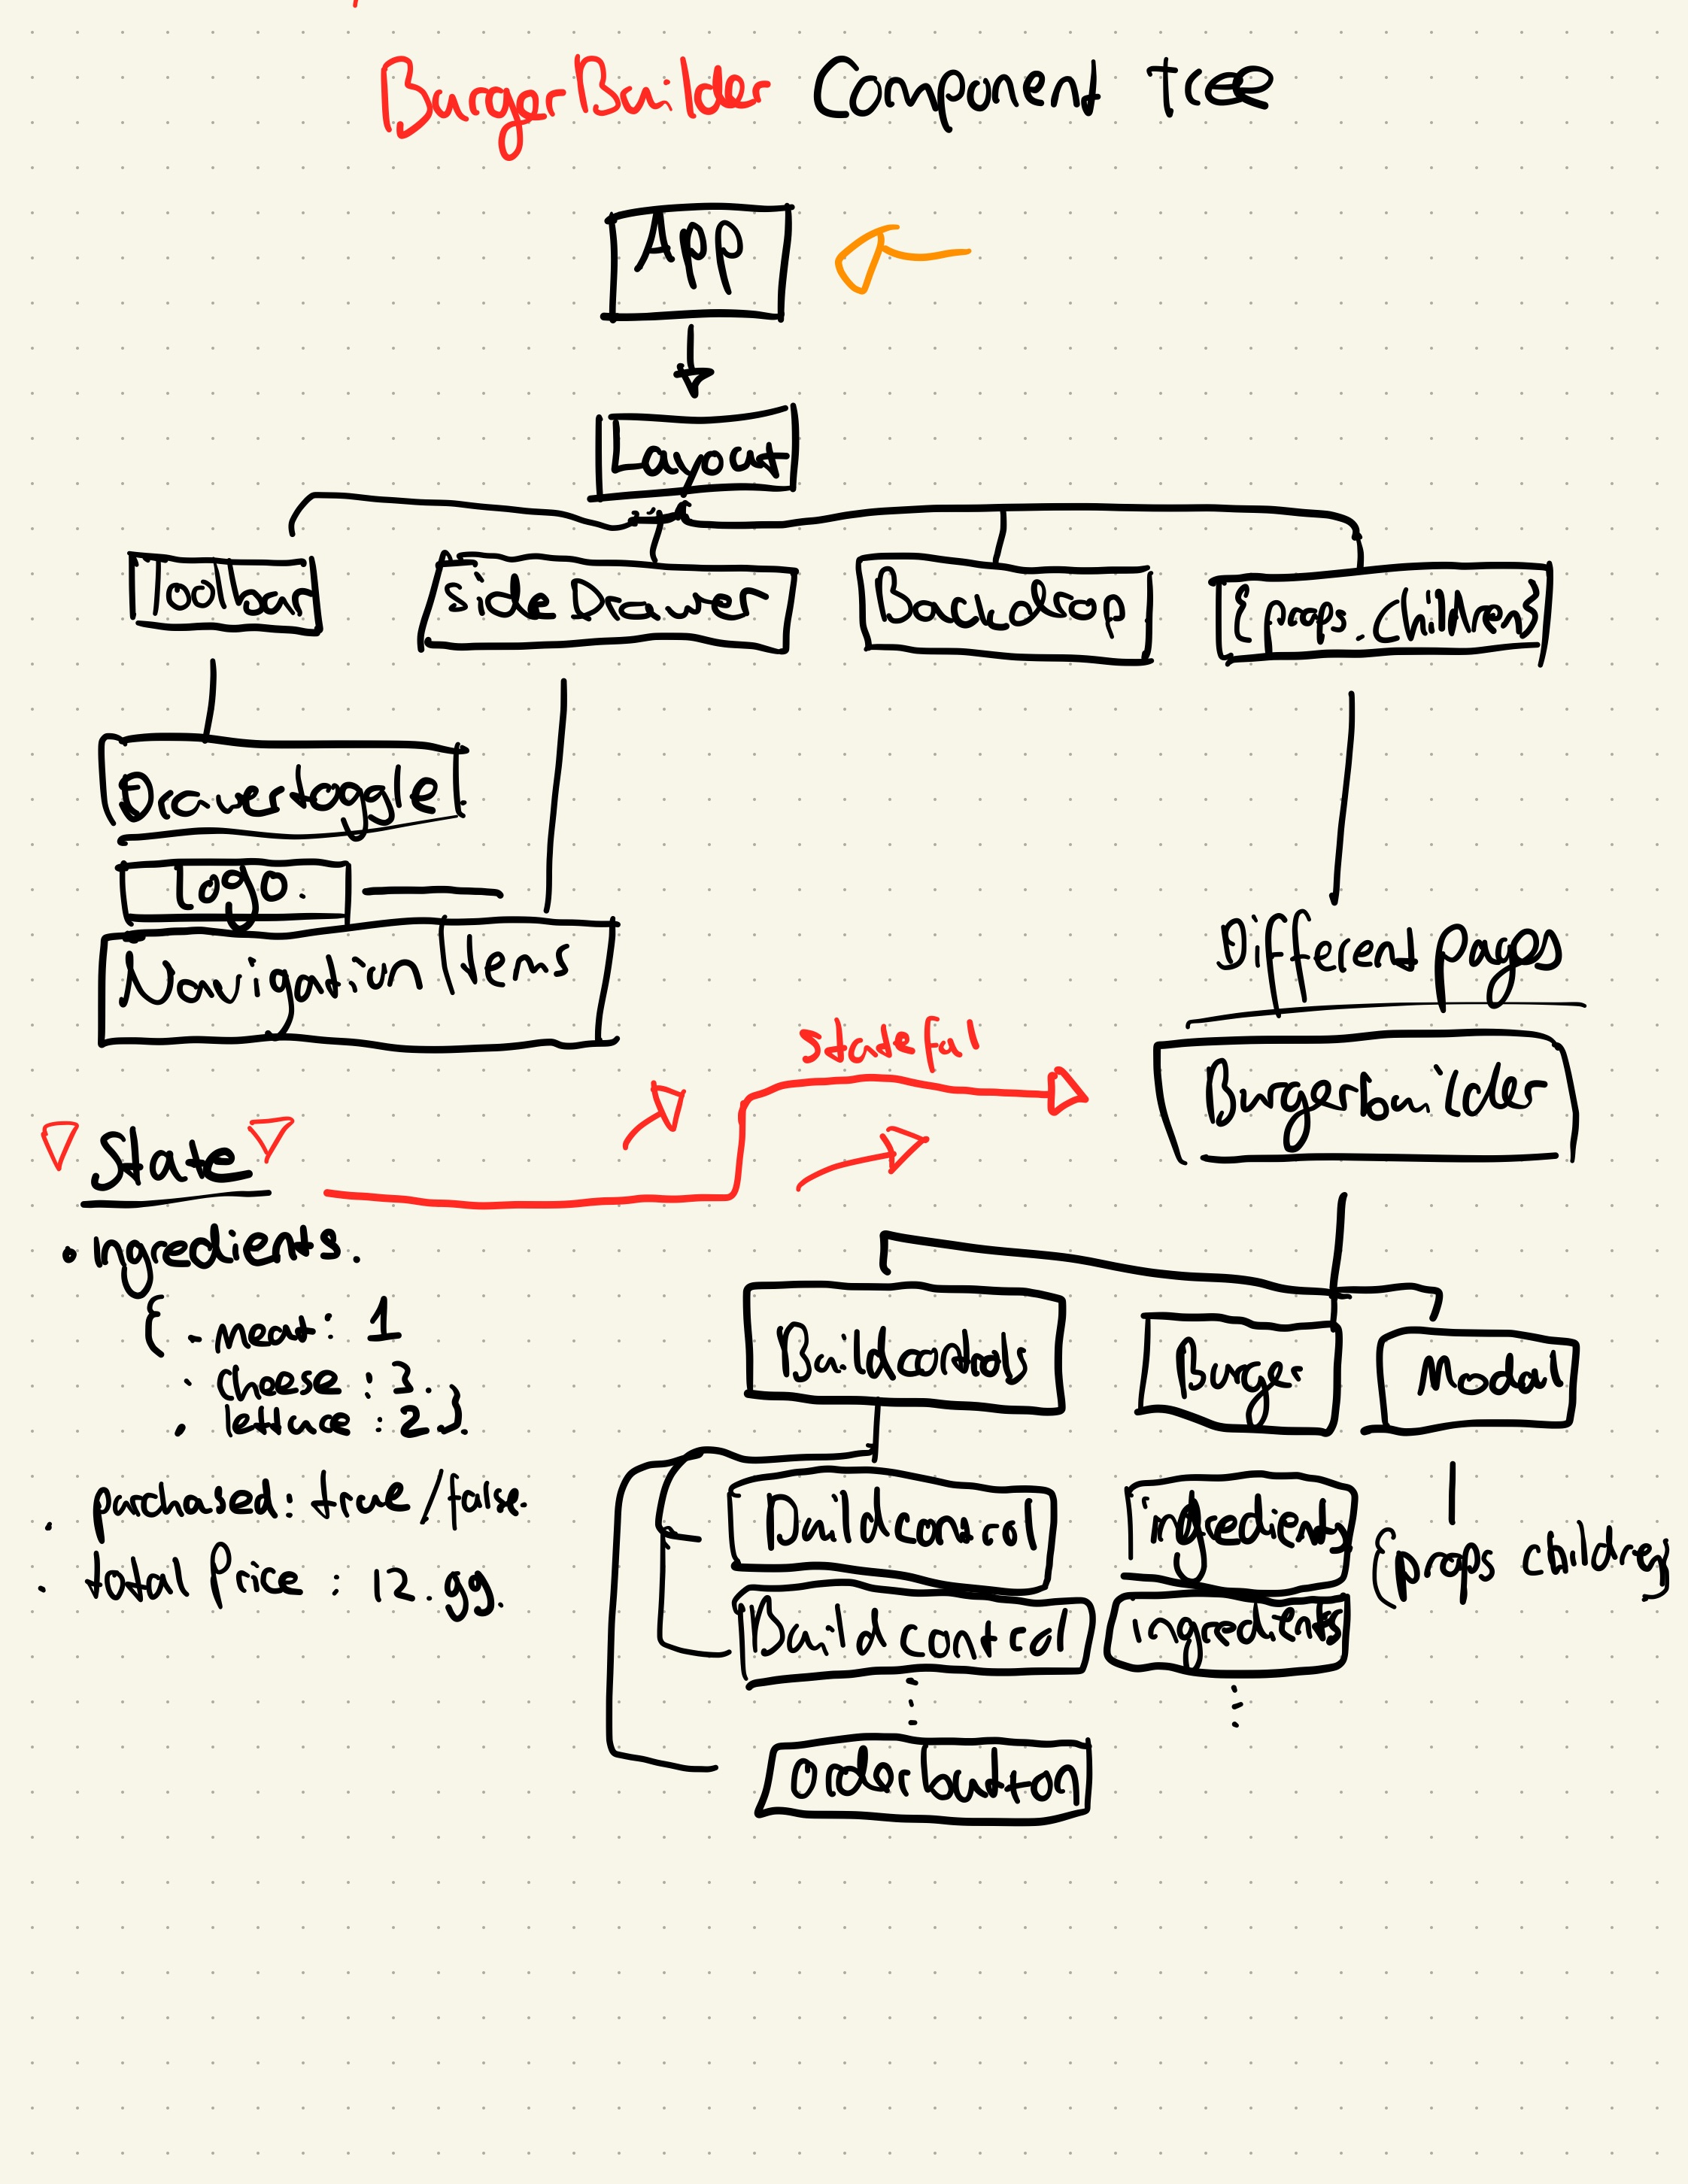 BurgerBuilder Component tree
App
Layout
Toolbar
sideDrawer
Backdrop
{props.children}
Drawertoggle
Logo.
Navigation Items
Different pages
stateful
Burgerbuilder
State
• ingredients.
{ . meat: 1
. cheese : 3.
. lettuce : 2 }.
. purchased: true/false.
. total Price : 12.99.
Buildcontrols
Burger
Modal
Buildcontrol
ingredients
{props children}
Buildcontrol
ingredients
orderbutton